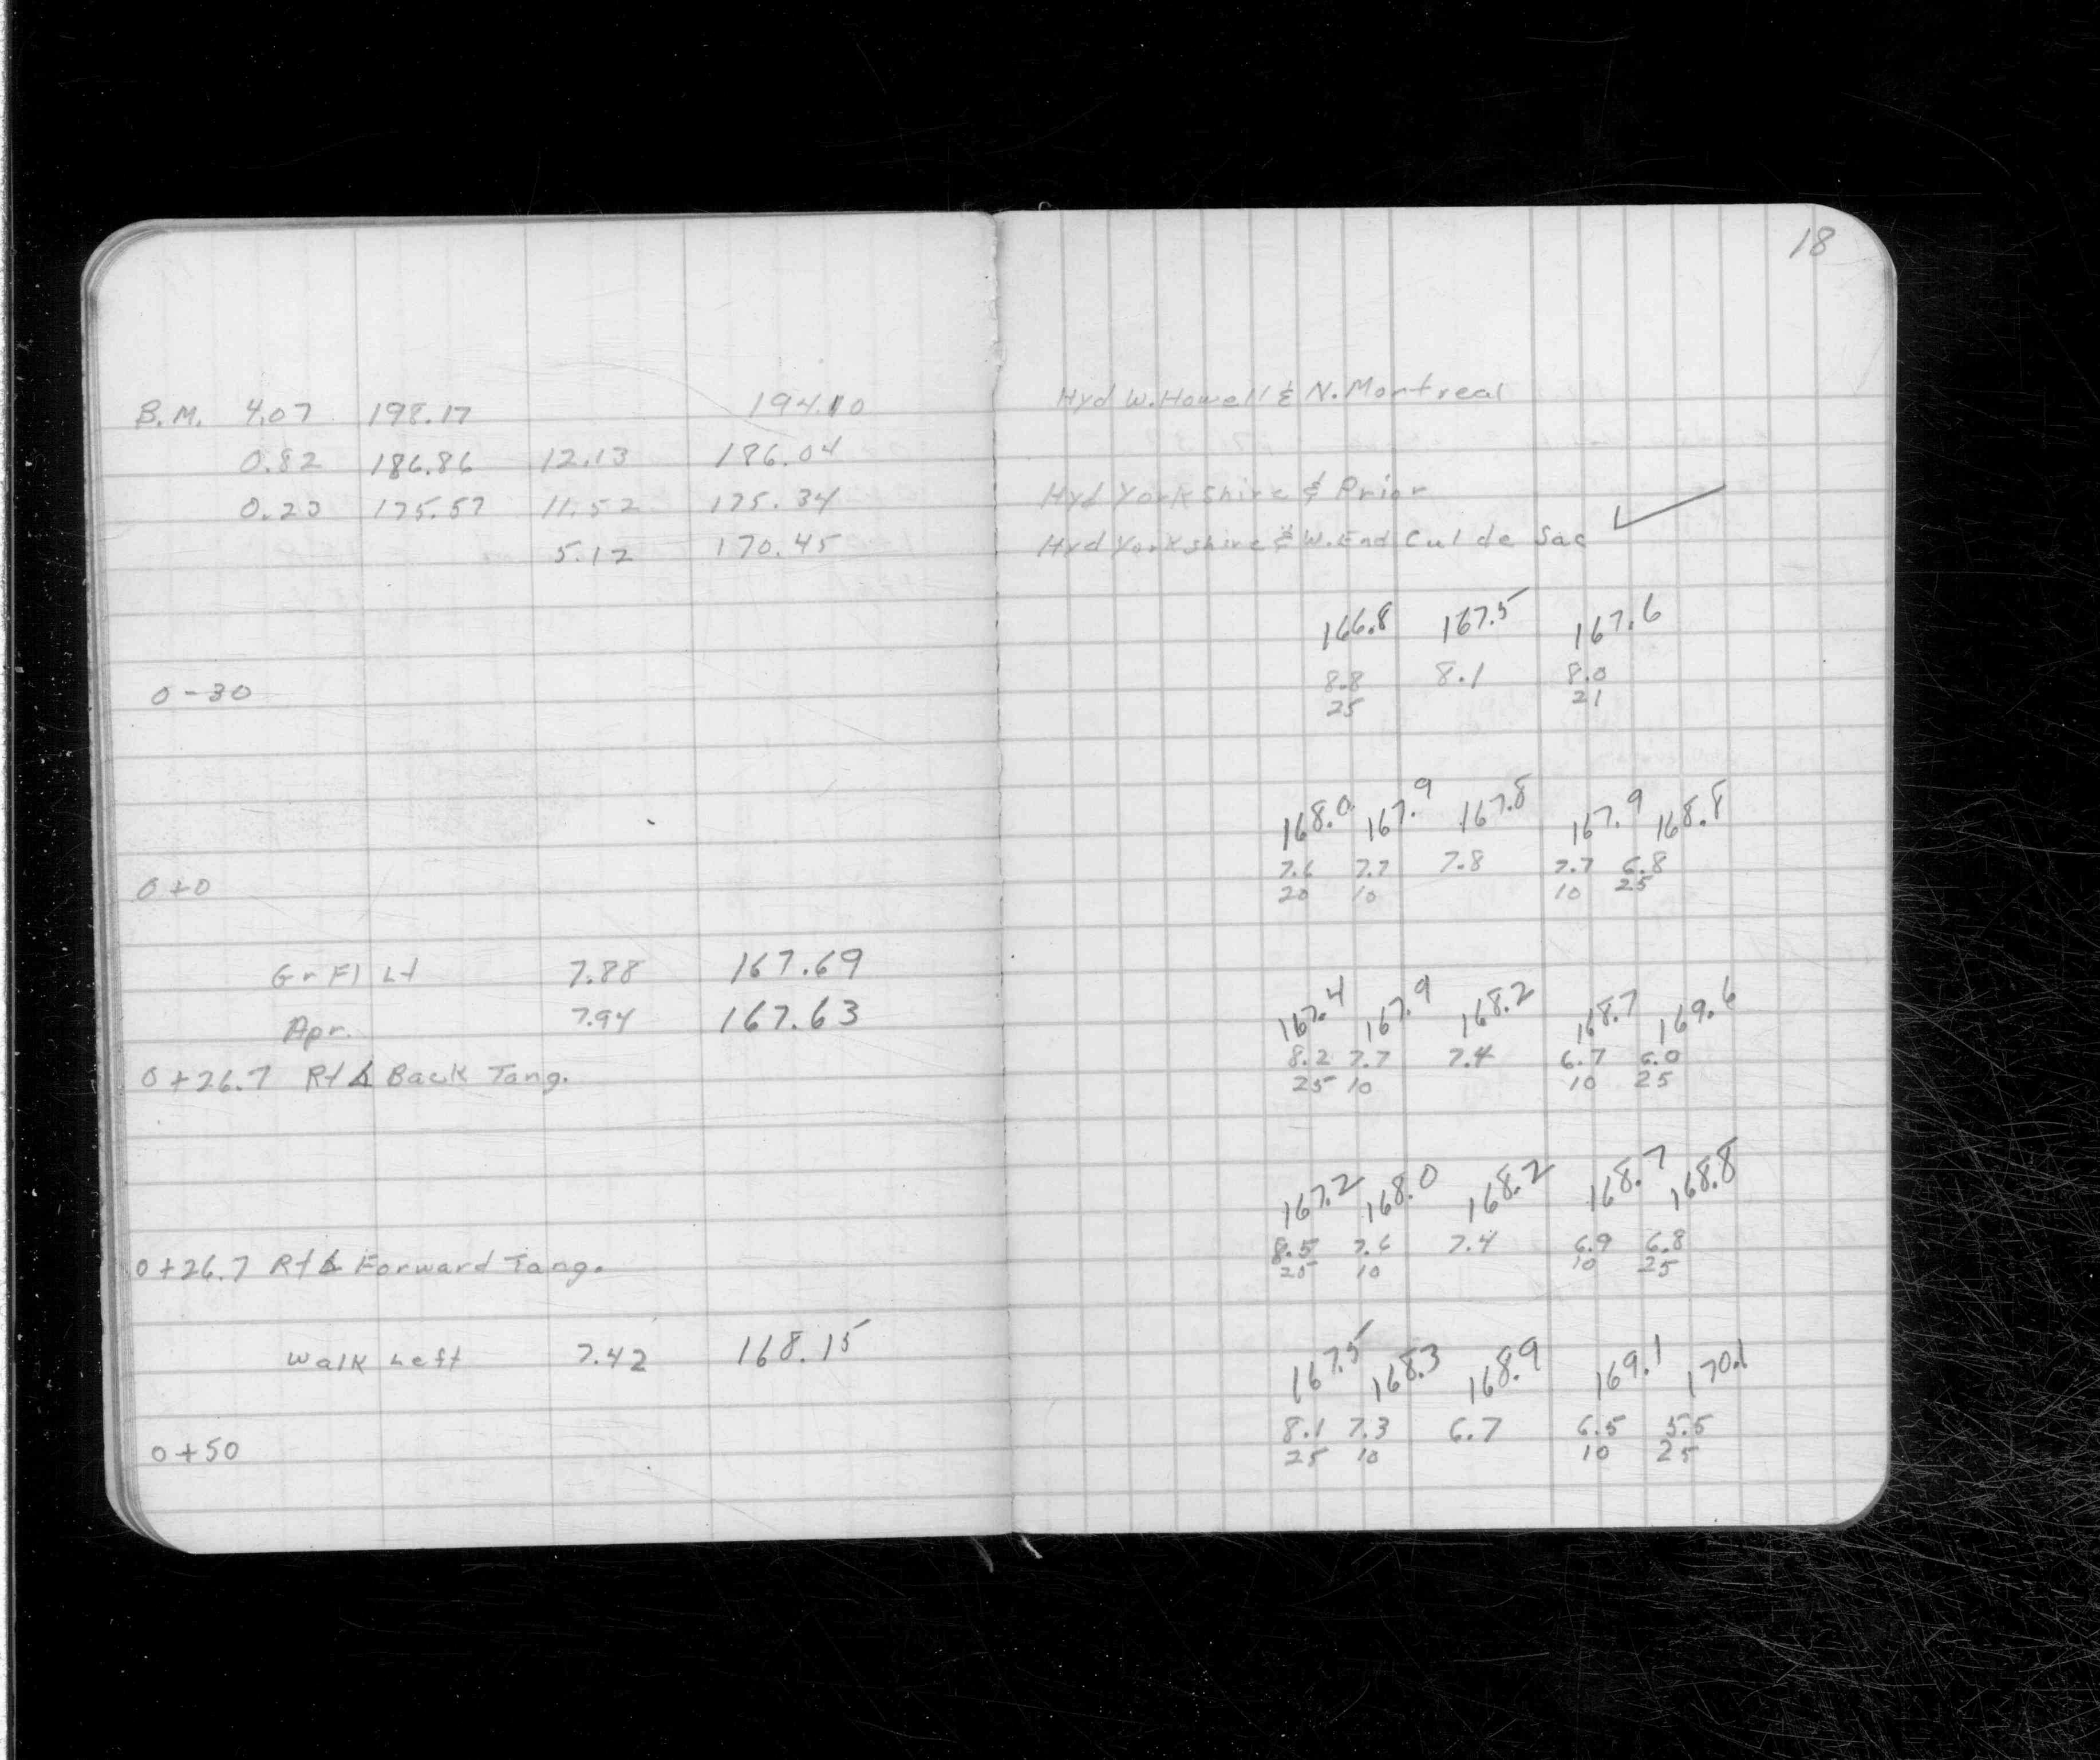 18
B.M. 4.07 198.17 194.10 Hyd W. Howell & N. Montreal
0.82 186.86 12.13 186.04
0.23 175.57 11.52 175.34 Hyd Yorkshire & Prior
5.12 170.45 Hyd Yorkshire & W. End Cul de Sac ✓
166.8 167.5 167.6
0-30 8.8 8.1 8.0
25 21
168.0 167.9 167.8 167.9 168.8
7.6 7.7 7.8 7.7 6.8
0+0 20 10 10 25
Gr Fl Lt 7.88 167.69
Apr. 7.94 167.63 167.4 167.9 168.2 168.7 169.6
8.2 7.7 7.4 6.7 6.0
0+26.7 Rt ∆ Back Tang. 25 10 10 25
167.2 168.0 168.2 168.7 168.8
0+26.7 Rt ∆ Forward Tang. 8.5 7.6 7.4 6.9 6.8
20 10 10 25
Walk Left 7.42 168.15 167.5 168.3 168.9 169.1 170.1
8.1 7.3 6.7 6.5 5.5
0+50 25 10 10 25